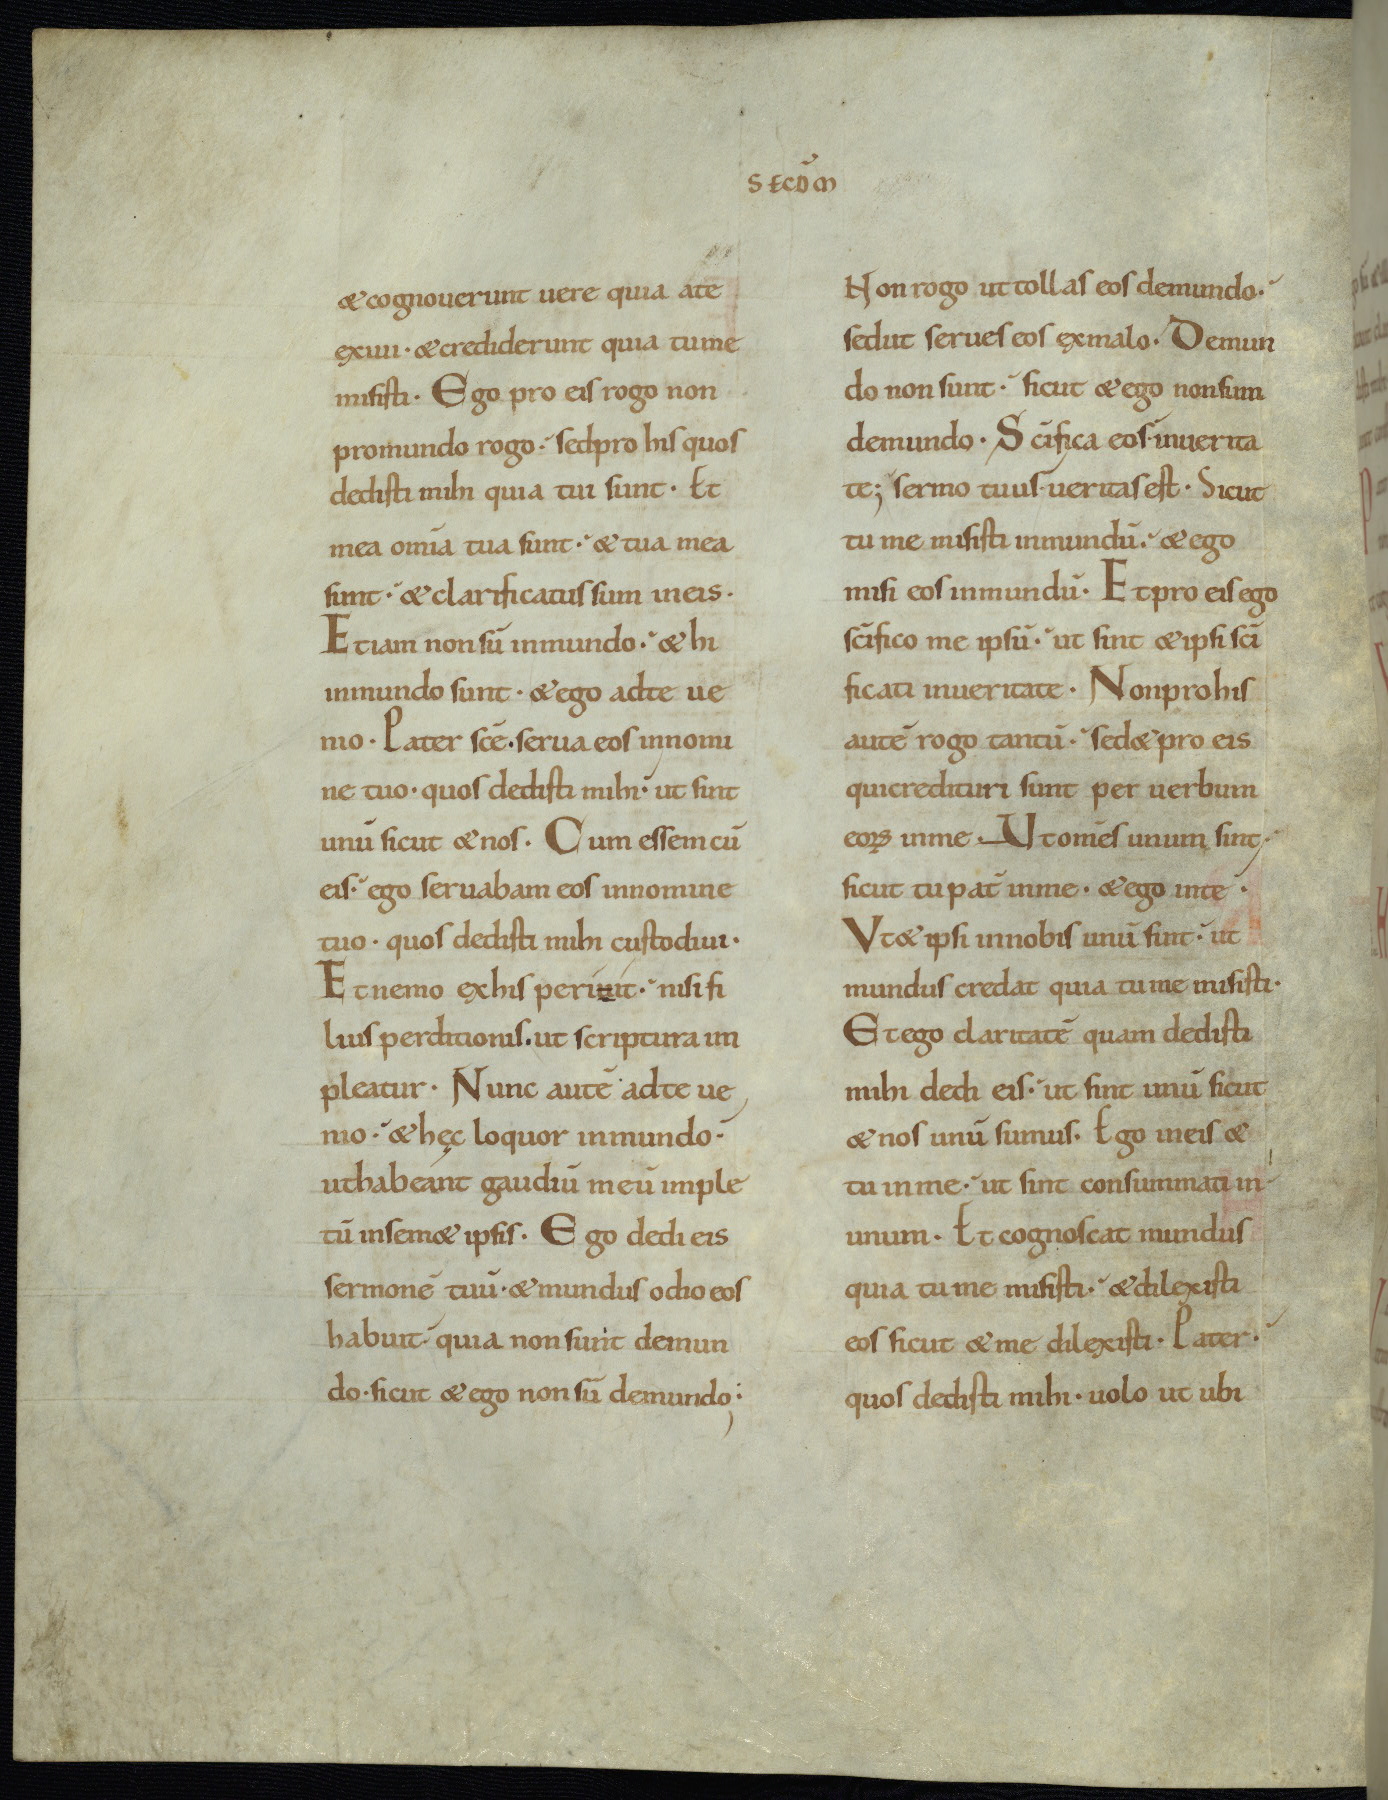 SECD̄M
& cognouerunt uere quia ate
exiui · & crediderunt quia tume
misisti · Ego pro eis rogo non
promundo rogo · sedpro his quos
dedisti mihi quia tui sunt · Et
mea omīa tua sunt · & tua mea
sunt · & clarificatus sum ineis ·
Etiam non sū inmundo · & hi
inmundo sunt · & ego adte ue
nio · Pater scē · serua eos innomi
ne tuo · quos dedisti mihi · ut sint
unū sicut & nos · Cum essem cū
eis · ego seruabam eos innomine
tuo · quos dedisti mihi custodiui ·
Et nemo exhis periit · nisi fi
lius perditionis · ut scriptura im
pleatur · Nunc autē adte ue
nio · & hęc loquor inmundo ·
uthabeant gaudiū meū imple
tū insem& ipsis · Ego dedi eis
sermonē tuū · & mundus odio eos
habuit · quia non sunt demun
do · sicut & ego non sū demundo ;
Non rogo ut tollas eos demundo ·
sedut serues eos exmalo · Demun
do non sunt · sicut & ego nonsum
demundo · Sc̄ifica eos inuerita
te ; sermo tuus ueritas est · Sicut
tu me misisti inmundū · & ego
misi eos inmundū · Et pro eis ego
sc̄ifico me ipsū · ut sint & ipsi sc̄i
ficati inueritate · Nonprohis
autē rogo tantū · sed& pro eis
quicredituri sunt per uerbum
eoꝝ inme · Ut om̄es unum sint ·
sicut tu pat̄ inme · & ego inte ·
Vt& ipsi innobis unū sint · ut
mundus credat quia tu me misisti ·
Et ego claritatē quam dedisti
mihi dedi eis · ut sint unū sicut
& nos unū sumus · Ego ineis &
tu inme · ut sint consummati in
unum · Et cognoscat mundus
quia tu me misisti · & dilexisti
eos sicut & me dilexisti · Pater ·
quos dedisti mihi · uolo ut ubi